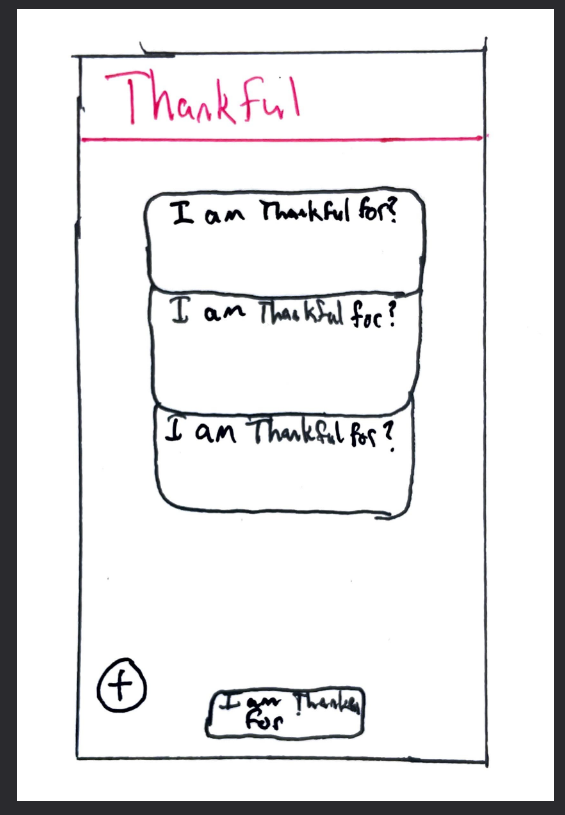 Thankful
I am Thankful for?
I am Thankful for?
I am Thankful for?
+
I am
for